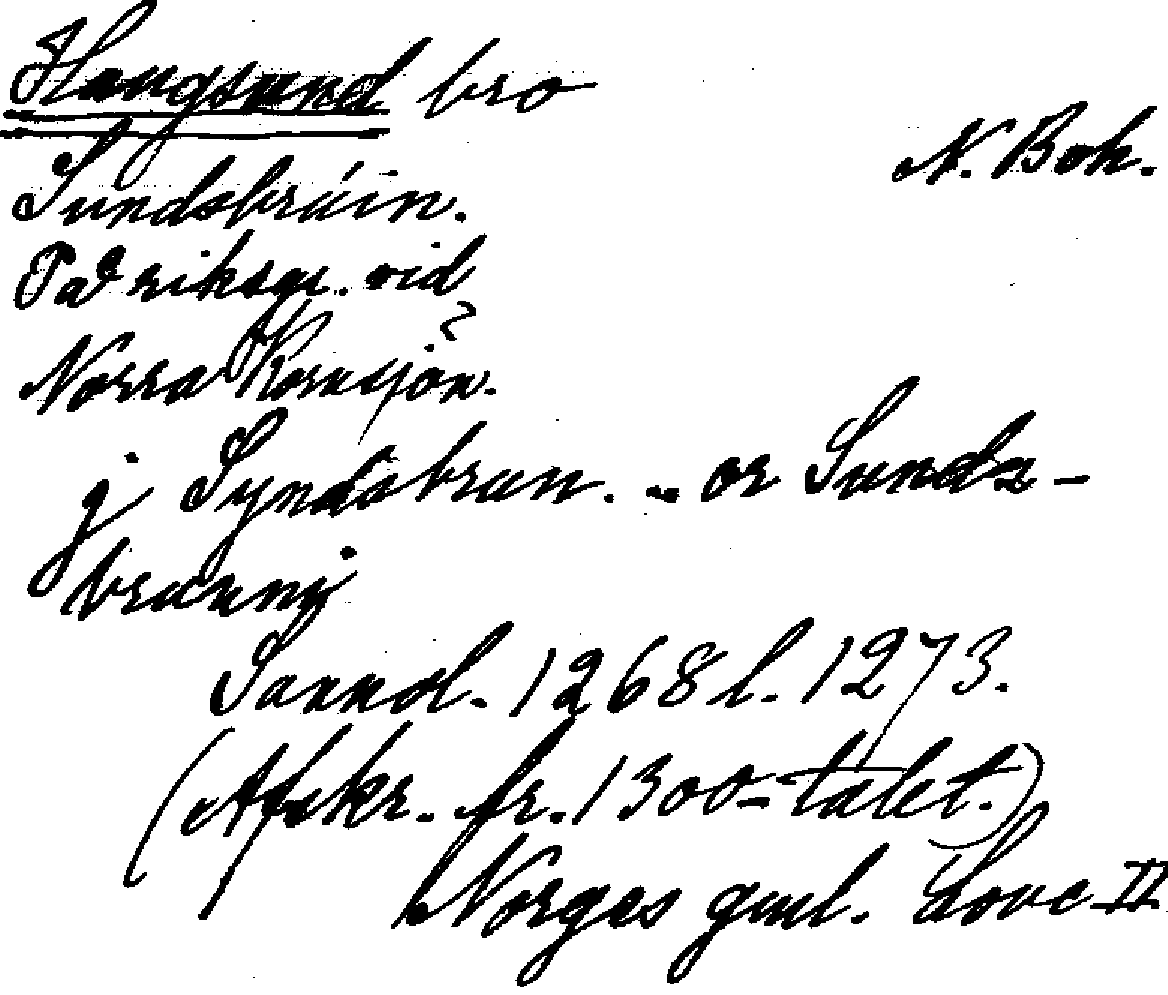 Haugsund bro
N. Boh.
Sundsbrúin.
På riksgr. vid
Norra Kornsjön. ?
j Syndsbrun. .. or Sunds-
brunni
Sannol. 1268 l. 1273.
(Afskr. fr. 1300-talet.)
Norges gml. Love II